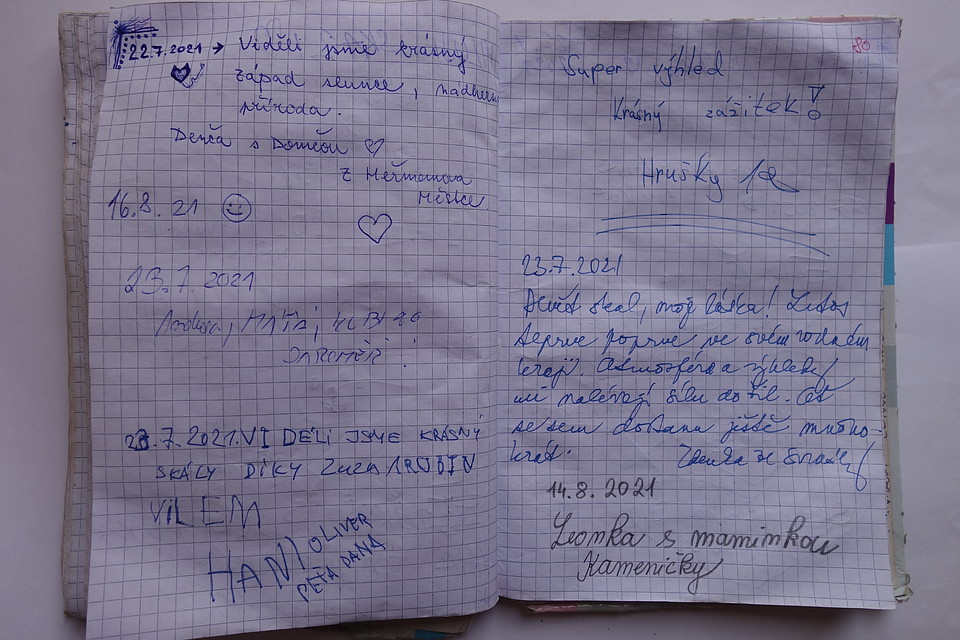 22.7.2021 → Viděli jsme krásný
západ slunce, nádherná
příroda.
Denča s Domčou ♡
z Heřmanova
Městce
16.8. 21 ☺
23.7. 2021
MÁŤA,
JAROMĚŘ
23.7.2021.VI DĚLI JSME KRÁSNÝ
SKÁLY DÍKY ZUZA
VILEM
HANI OLIVER
PÉŤA DANA
80
Super výhled
Krásný zážitek!
Hrušky
23.7.2021
skal, moje láska! Letos
teprve poprvé ve svém rodném
kraji. Atmosféra a výhledy
mi nalévají sílu do žil. Ať
se sem dostanu ještě mnoho-
krát. Zdenka ze
14.8. 2021
Leonka s maminkou
Kameničky